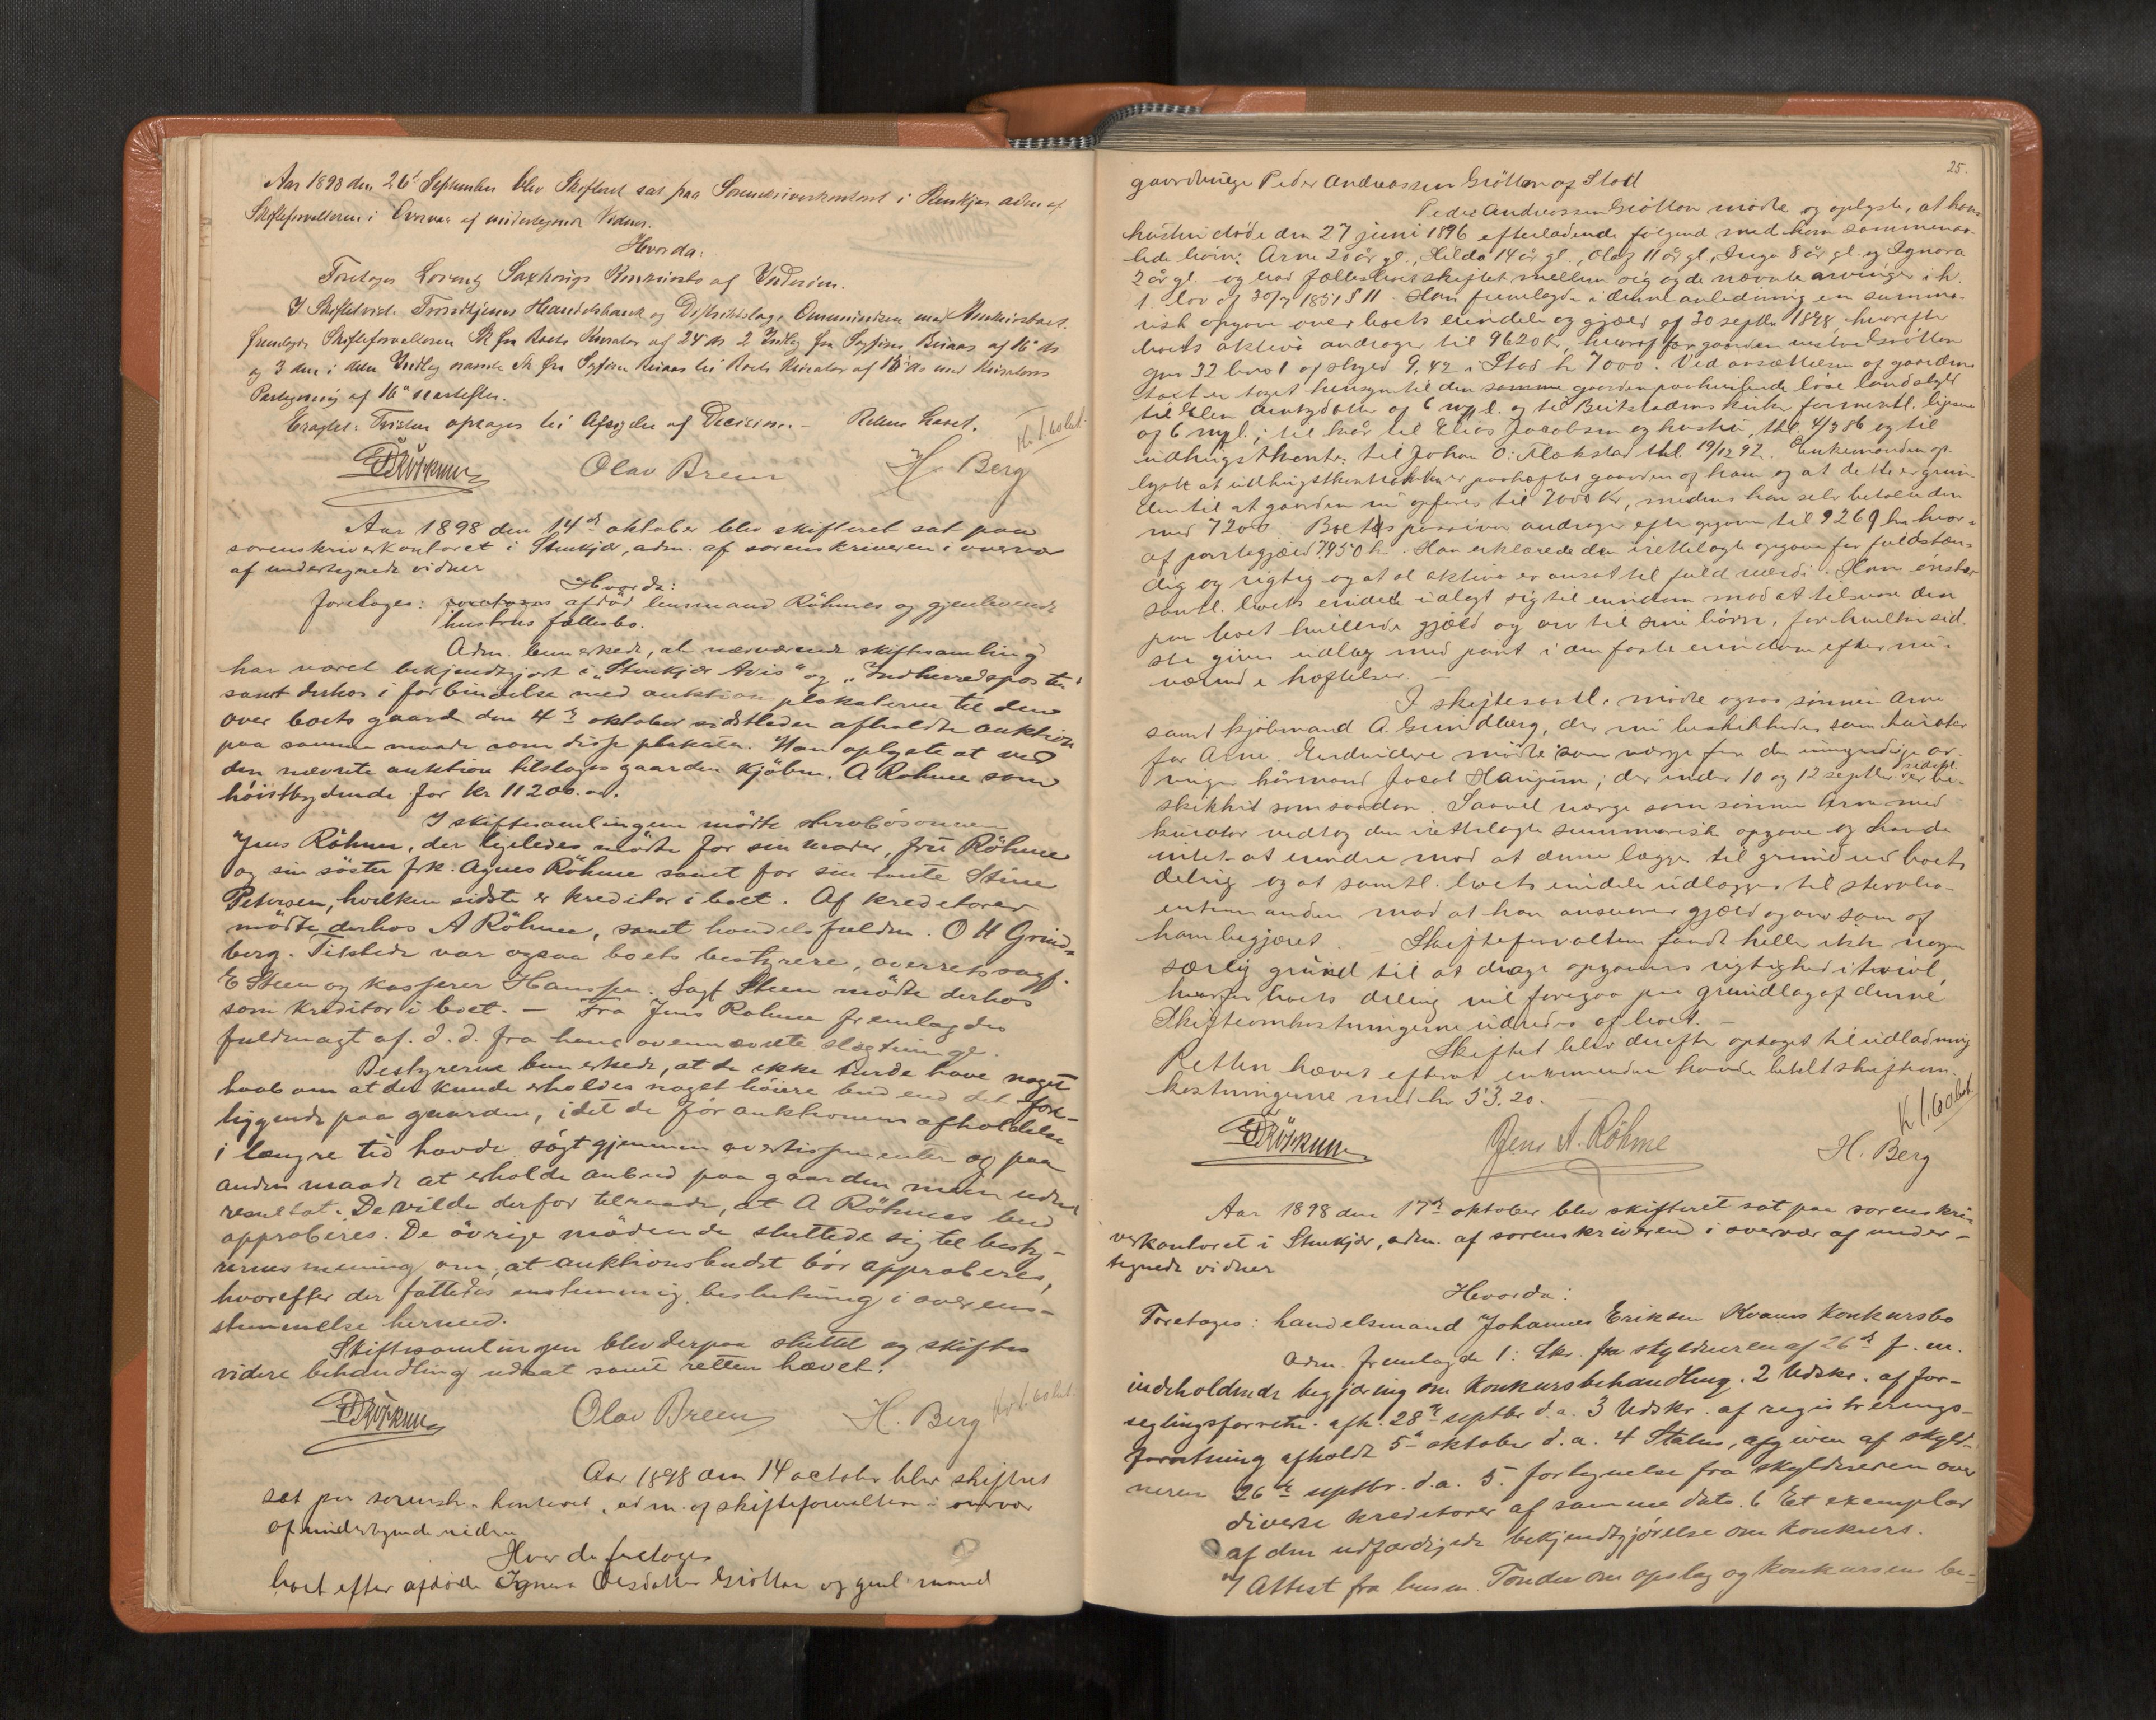 Aar 1898 den 26' September blev Skifteret sat paa Sorenskriverkontoret i Stenkjær adm af
Skifteforvalteren i Overvær af undertegnede Vidner.
Hvorda:
Foretoges Lorentz Saxhaugs Konkursbo af Inderöen.
I Skifteretst. Trondhjems Handelsbank og Diskontobags Omminidsen mod Konkursboet.
fremlagdes Skifteforvalteren Sk fra Boets Kurator af 24' ds 2 Indlæg fra Sagfører Buaas af 16' ds
og 3 den i dette Indlæg nævnte Sk fra Sagfører Buaas til Boets Kurator af 13' ds med Kurators
Paategning af 16' næstefter.
Eragtet: Tvisten optages til Afsigelse af Decision. – Retten hævet.
Kr 1.60 bet.
Olav Breen
H. Berg
Aar 1898 den 14de oktober blev skifteret sat paa
sorenskriverkontoret i Stenkjær, adm. af sorenskriveren i overvær
af undertegnede vidner
Hvorda:
foretages: foretages afdød lensmand Röhmes og gjenlevende
hustrus fællesbo.
Adm. bemerkede, at nærværende skiftesamling
har været bekjendtgjort i "Stenkjær Avis" og "Indherredsposten"
samt derhos i forbindelse med auktionsplakaterne til den
over boets gaard den 4de oktober sidstleden afholdte auktion
paa samme maade som disse plakater. Han oplyste at ved
den nævnte auktion tilsloges gaarden kjöbm. A Röhme som
höistbydende for kr 11200.00.
I skiftesamlingen mödte sterbösönnen
Jens Röhme, der ligeledes mödte for sin moder, frü Röhme
og sin söster frk. Agnes Röhme samt for sin tante Stine
Petersen, hvilken sidste er kreditor i boet. Af kreditorer
mödte derhos A Röhme, samt handelsfuldm. O H Grind-
berg. Tilstede var ogsaa boets bestyrere, overretssagf.
E Steen og kasserer Hanssen. Sagf Steen mödte derhos
som kreditor i boet. – Fra Jens Röhme fremlagdes
fuldmagt af d. d. fra hans ovennævnte slægtninge.
Bestyrerne bemerkede, at de ikke turde have noget
haab om at der kunde erholdes noget höiere bud end det fore-
liggende paa gaarden, idet de för auktionens afholdelse
i længre tid havde sögt gjennem avertissementer og paa
anden maade at erholde anbud paa gaarden men uden
resultat. De vilde derfor tilraade, at A Röhmes bud
approberes. De övrige mödende sluttede sig til besty-
rernes mening om, at auktionsbudet bör approberes,
hvorefter der fattedes enstemmig beslutning i overens-
stemmelse hermed.
Skiftesamlingen blev derpaa sluttet og skiftes
videre behandling udsat samt retten hævet.
Olav Breen
H. Berg
Kr 1.60 bet.
Aar 1898 den 14 october blev skifteret
sat paa sorenskr. kontoret, adm. af skifteforvalteren i overvær
af undertegnede vidner
Hvorda foretoges
boet efter afdöde Ignora Olesdatter Gröttan og gjenl. mand
25.
gaardbruger Peder Andreassen Gröttan af Stod
Peder Andreassen Gröttan mödte og oplyste, at hans
hustru döde den 27 juni 1896 efterladende fölgende med ham sammenav-
lede börn: Arne 20 år gl., Hilda 14 år gl., Olaf 11 år gl, Inga 8 år gl. og Ignora
2 år gl. og bad fællesboet skiftet mellem sig og de nævnte arvinger i h.
t. lov af 30/7 1851 § 11. Han fremlagde i denne anledning en summa-
risk opgave over boets eiendele og gjæld af 30 septbr 1898, hvorefter
boets aktiva andrager til 9620 kr, hvoraf for gaarden
gnr 32 bno 1 af skyld 9,42 i Stod kr 7000. Ved ansættelsen af gaardens
taxt er taget hensyn til den samme gaarden paahvilende
til Elen af 6 og til Beitstadens kirke
og 6 ; til kår til Elias Jacobsen og hustru, thl. 4/3 86 og til
udhugstkontr. til Johan O. Flekstad thl 19/12 92. Enkemanden op-
lyste at udhugstkontrakten er paaheftet gaarden af ham og at dette er grun-
den til at gaarden nu opföres til 7000 kr, medens han selv betalte den
med 7200. Boets passiva andrager efter opgaven til 9269 kr hvor-
af pantegjæld 7950 kr. Han erklærede den irettelagte opgave for fuldstæn-
dig og rigtig og at al aktiva er ansat til fuld værdi. Han önsker
samtl. boets eiendele udlagt sig til eiendom mod at tilsvare den
paa boet hvilende gjæld og arv til sine börn, for hvilken sid-
ste gives udlæg med pant i den faste eiendom efter nu-
værende heftelser. –
I skiftesaml. mödte ogsaa sönnen Arne
samt kjöbmand A. Grindberg, der nu beskikkedes som kurator
for Arne. Endvidere mödte som værge for de umyndige ar-
vinger kårmand Jacob Haugum, der under 10 og 12 septbr sidstl. er be-
skikket som saadan. Saavel værge som sönnen Arne med
kurator vedtog den irettelagte summariske opgave og havde
intet at erindre mod at denne lægges til grund ved boets
deling og at samtl. boets eiendele udlægges til sterbo-
enkemanden mod at han ansvarer gjæld og arv som af
ham begjæret. Skifteforvalteren fandt heller ikke nogen
særlig grund til at drage opgavens rigtighed i tvivl,
hvorfor boets deling vil foregaa paa grundlag af denne
Skifteomkostningerne udredes af boet. –
Skiftet blev derefter optaget til udlodning
Retten hævet efterat enkemanden havde betalt skifteom-
kostningerne med kr 53.20.
Kr 1.60 bet.
Jens A. Röhme
H. Berg
Aar 1898 den 17de oktober blev skifteret sat paa sorenskri-
verkontoret i Stenkjær, adm. af sorenskriveren i overvær af under-
tegnede vidner
Hvorda:
Foretoges: handelsmand Johannes Eriksen Kvams konkursbo
Adm. fremlagde 1: Skr. fra skyldneren af 26de f. m.
indeholdende begjæring om konkursbehandling. 2 Udskr. af for-
seglingsforretn. afh. 28de septbr d. a. 3 Udskr. af registrerings-
forretning afholdt 5te oktober d. a. 4 Status, afgiven af skyld-
neren 26de septbr. d. a. 5. fortegnelse fra skyldneren over
diverse kreditorer af samme dato. 6 Et exemplar
af den udfærdigede bekjendtgjörelse om konkurs.
7 Attest fra lensm. Tonder om opslag og konkursens be-